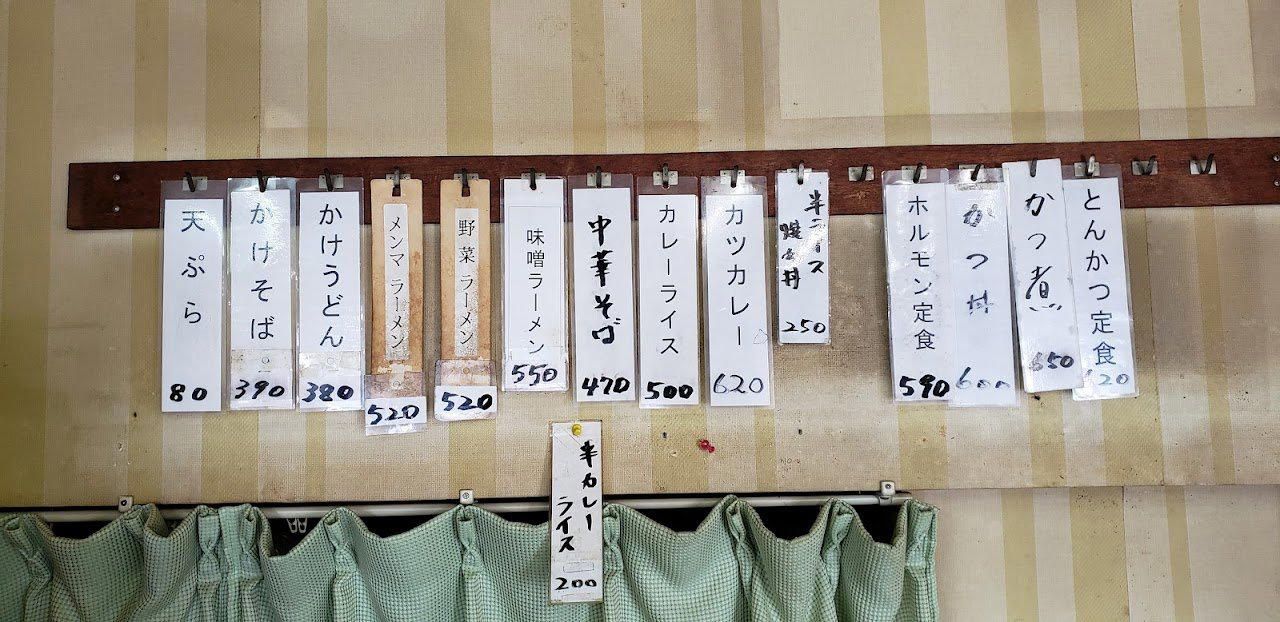 天ぷら
80
かけそば
390
かけうどん
380
メンマ ラーメン
520
野菜 ラーメン
520
味噌ラーメン
550
中華そば
470
カレーライス
500
カツカレー
620
半ライス
焼肉丼
250
ホルモン定食
590
かつ丼
600
かつ煮
650
とんかつ定食
20
半カレー
ライス
200